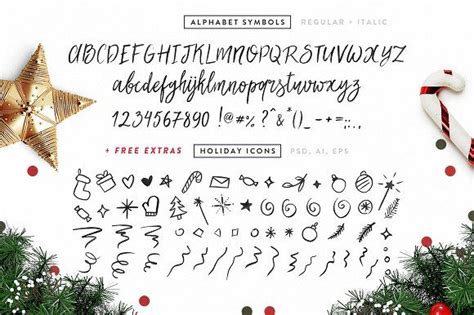 ALPHABET SYMBOLS REGULAR + ITALIC
ABCDEFGHIJKLMNOPQRSTUVWXYZ
abcdefghijklmnopqrstuvwxyz
1234567890 !@#%?&*()_-+=;:,.
+ FREE EXTRAS HOLIDAY ICONS PSD, AI, EPS